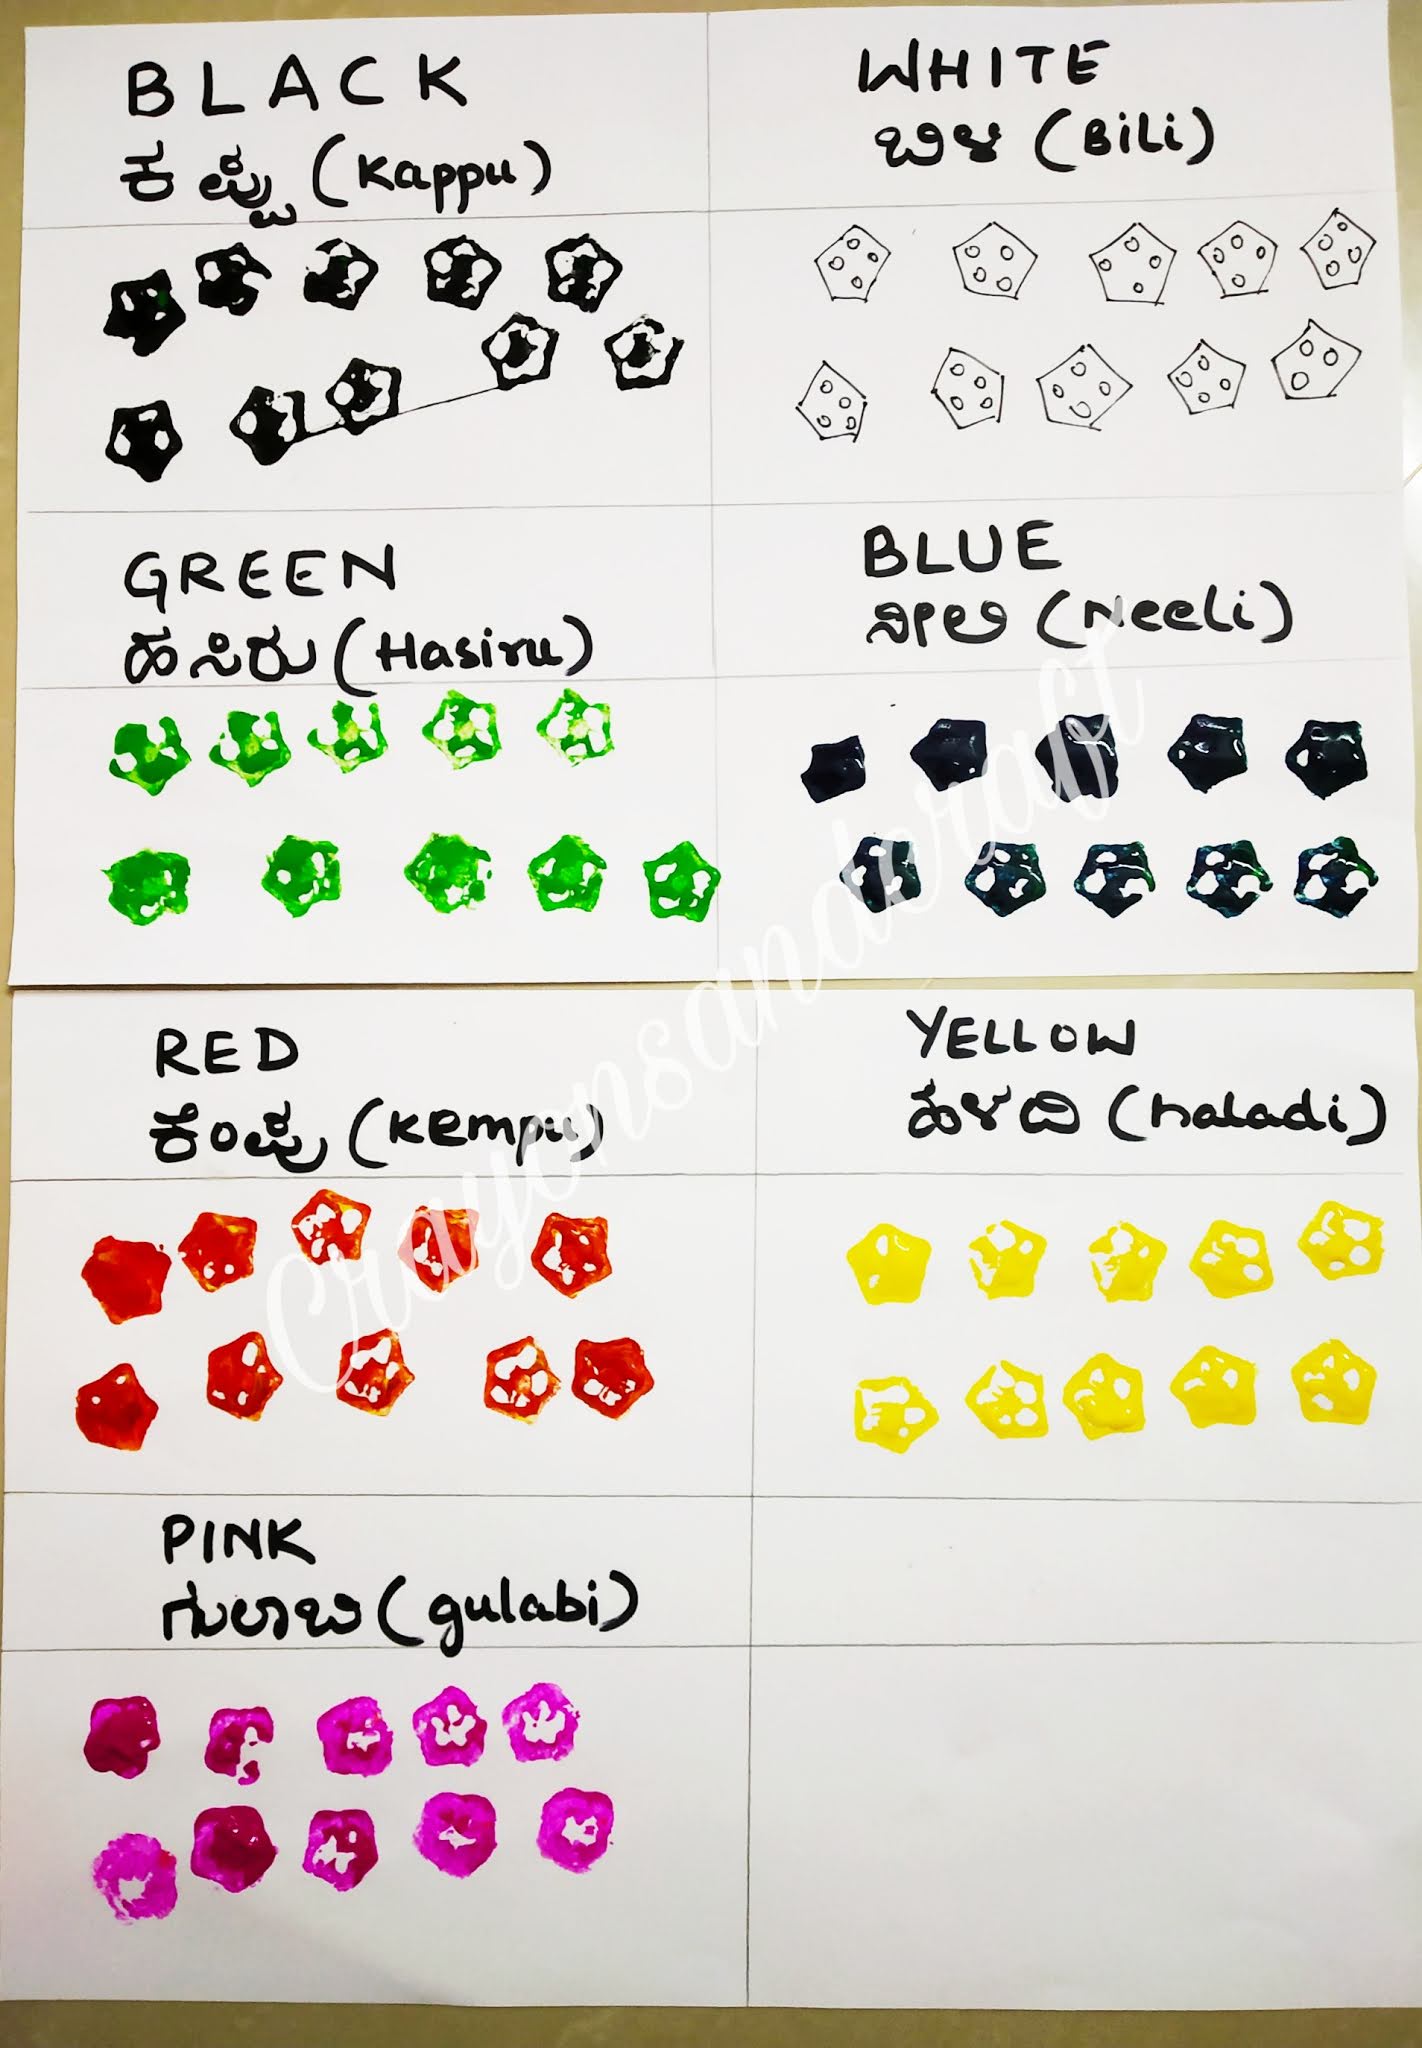 BLACK
ಕಪ್ಪು (Kappu)
WHITE
ಬಿಳಿ (BiLi)
GREEN
ಹಸಿರು (Hasiru)
BLUE
ನೀಲಿ (Neeli)
RED
ಕೆಂಪು (Kempu)
YELLOW
ಹಳದಿ (haladi)
PINK
ಗುಲಾಬಿ (gulabi)
Crayonsandcraft